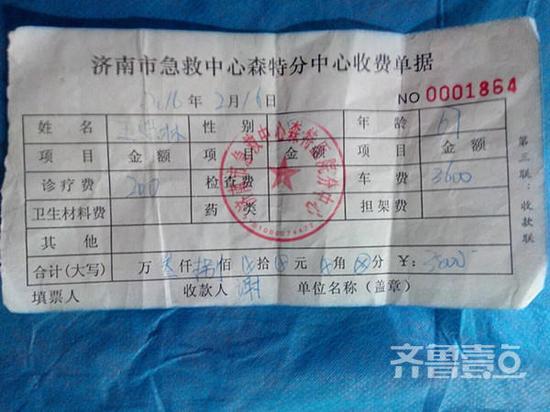 济南市急救中心森特分中心收费单据
2016年2月16日 NO 0001864
姓名 林 性别 年龄 67
项目 金额 项目 金额 项目 金额
诊疗费 200 检查费 车费 3600
卫生材料费 药类 担架费
其他
合计(大写) 万 叁 仟 捌 佰 拾 元 角 分 ¥: 3800
填票人 收款人 谢 单位名称(盖章)
第三联:收款联
济南市急救中心森特医院分中心
齐鲁壹点